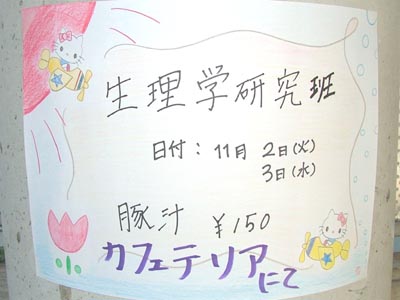 生理学研究班
日付: 11月 2日(火)
3日(水)
豚汁 ¥150
カフェテリアにて